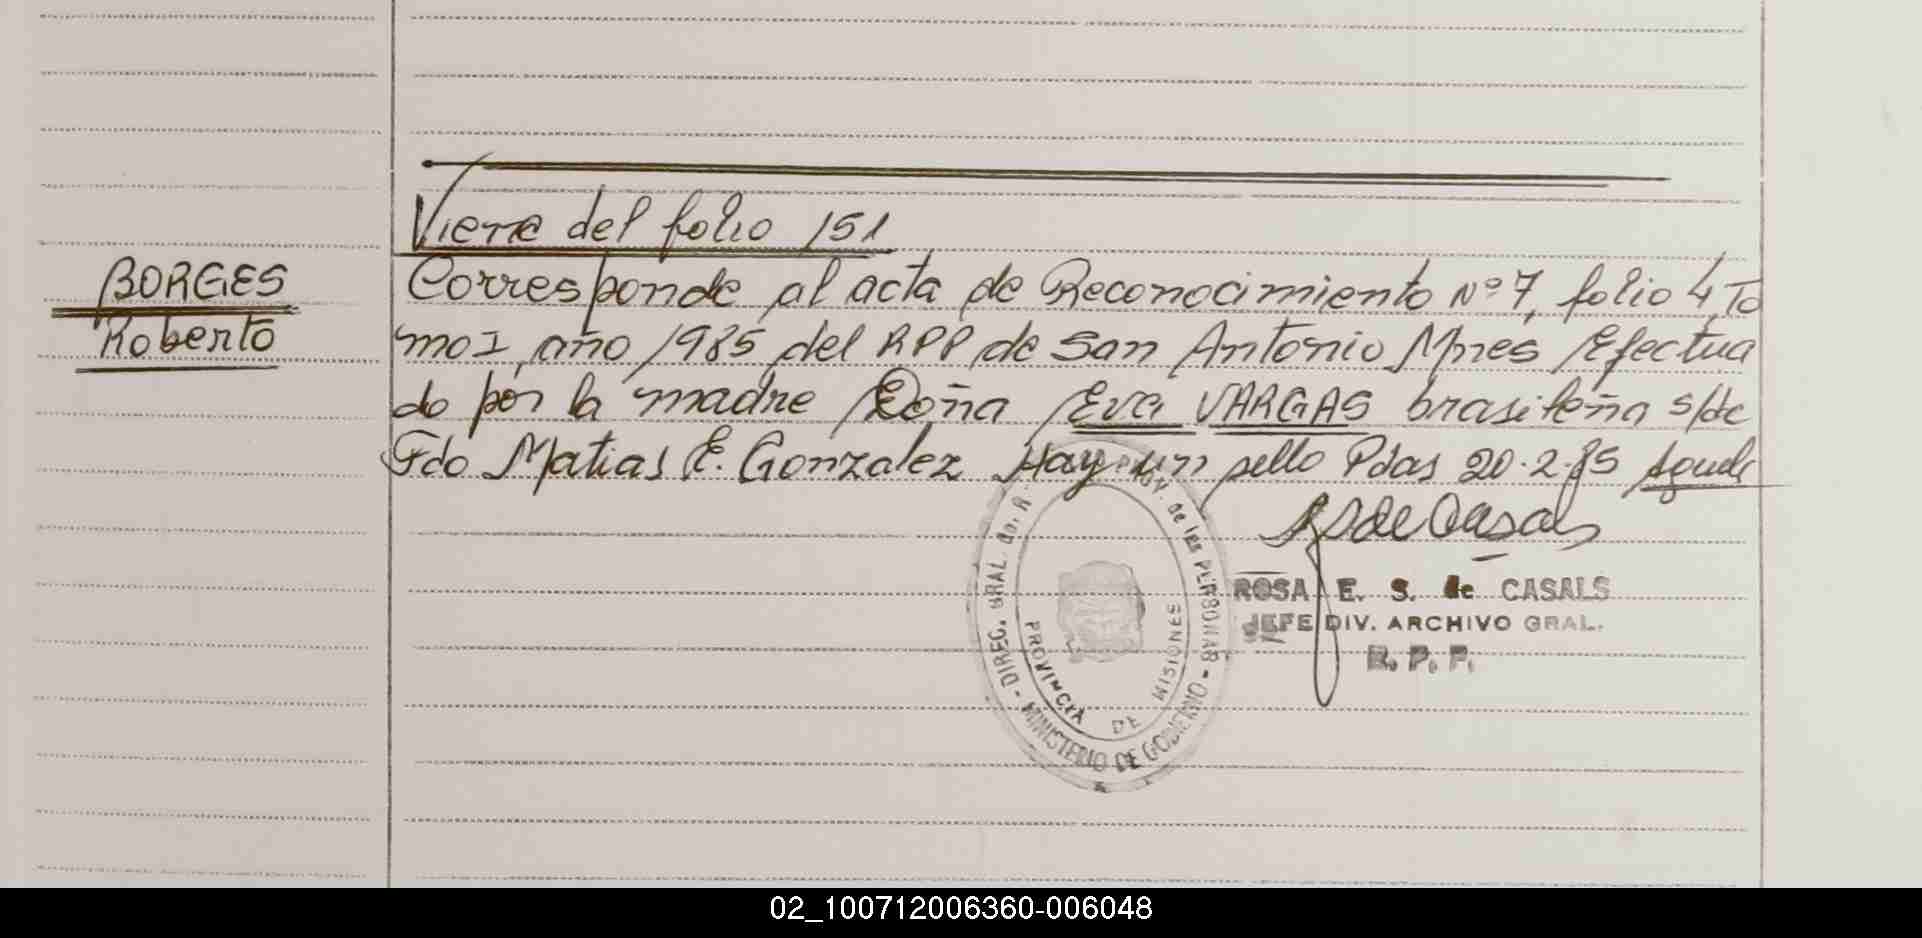 Viene del folio 151
BORGES
Roberto
Corresponde al acta de Reconocimiento Nº 7, folio 4, To
mo I, año 1985 del RPP de San Antonio Mnes Efectua
do por la madre Doña Eva VARGAS brasileña s/de
Fdo Matias E. Gonzalez Hay un sello Pdas 20.2.85
RS de Casals
ROSA E. S. de CASALS
JEFE DIV. ARCHIVO GRAL.
R. P. P.
DIREC. GRAL. de las PERSONAS - MINISTERIO DE GOBIERNO -
PROVINCIA DE MISIONES
02_100712006360-006048